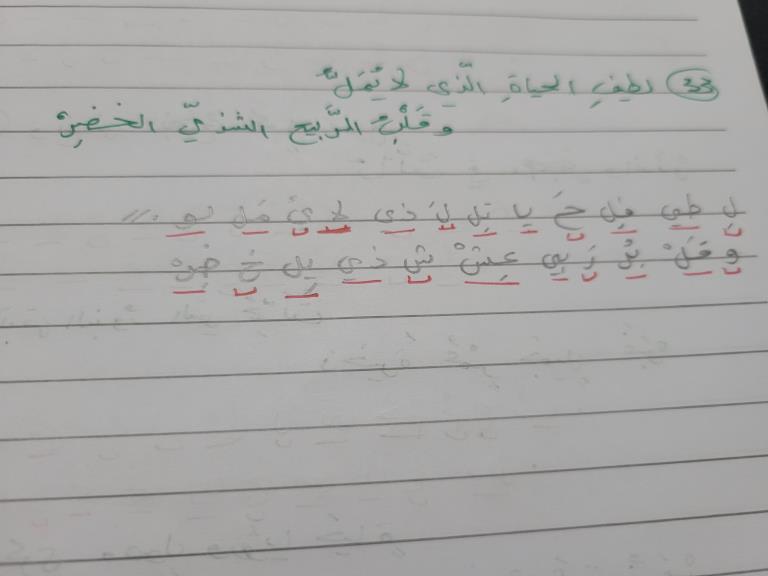 33 لطيفِ الحياةِ الّذي لا يُمَلّ
وقَلْبِ الرَّبيعِ الشذيّ الخَضِرْ
لِ طي فِل حَ يا تِل لَ ذي لا يُ مَل لو //
وَ قَلْ بِرْ رَ بي عِشْ شَ ذي يِل خَ ضِرْ